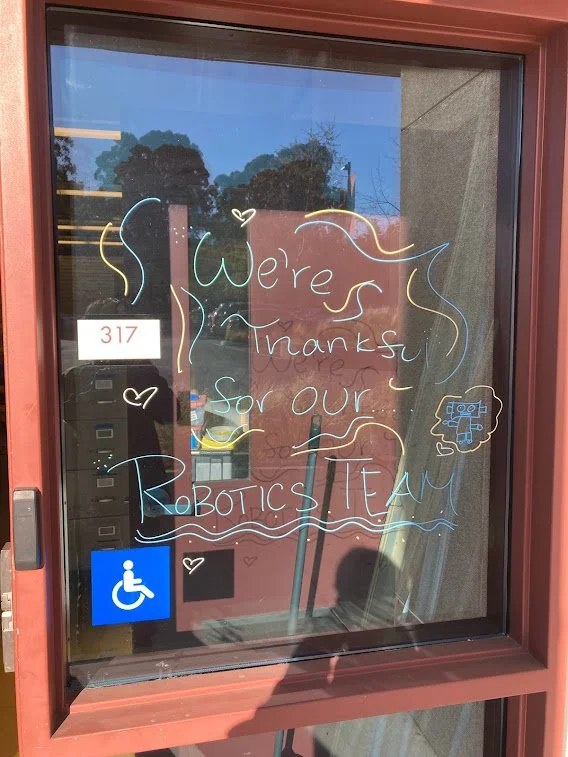 We're
317
Thankful
for our
ROBOTICS TEAM